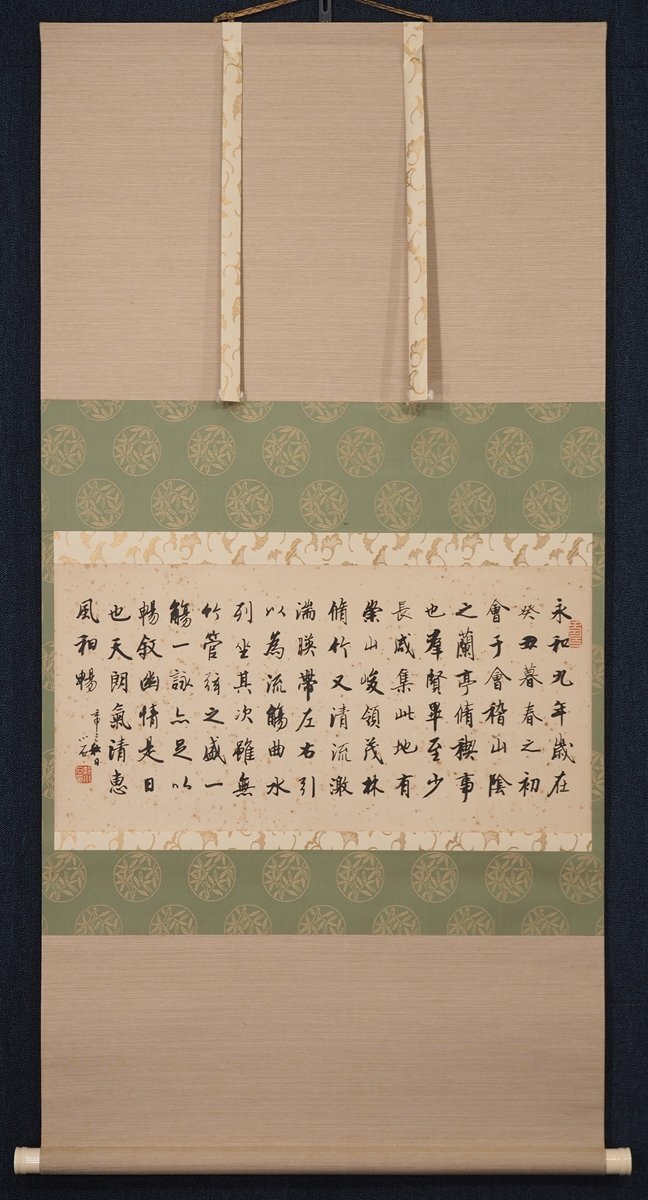 永和九年歲在
癸丑暮春之初
會于會稽山陰
之蘭亭脩禊事
也羣賢畢至少
長咸集此地有
崇山峻領茂林
脩竹又清流激
湍暎帶左右引
以為流觴曲水
列坐其次雖無
竹管弦之盛一
觴一詠亦足以
暢叙幽情是日
也天朗氣清恵
風和暢
小石